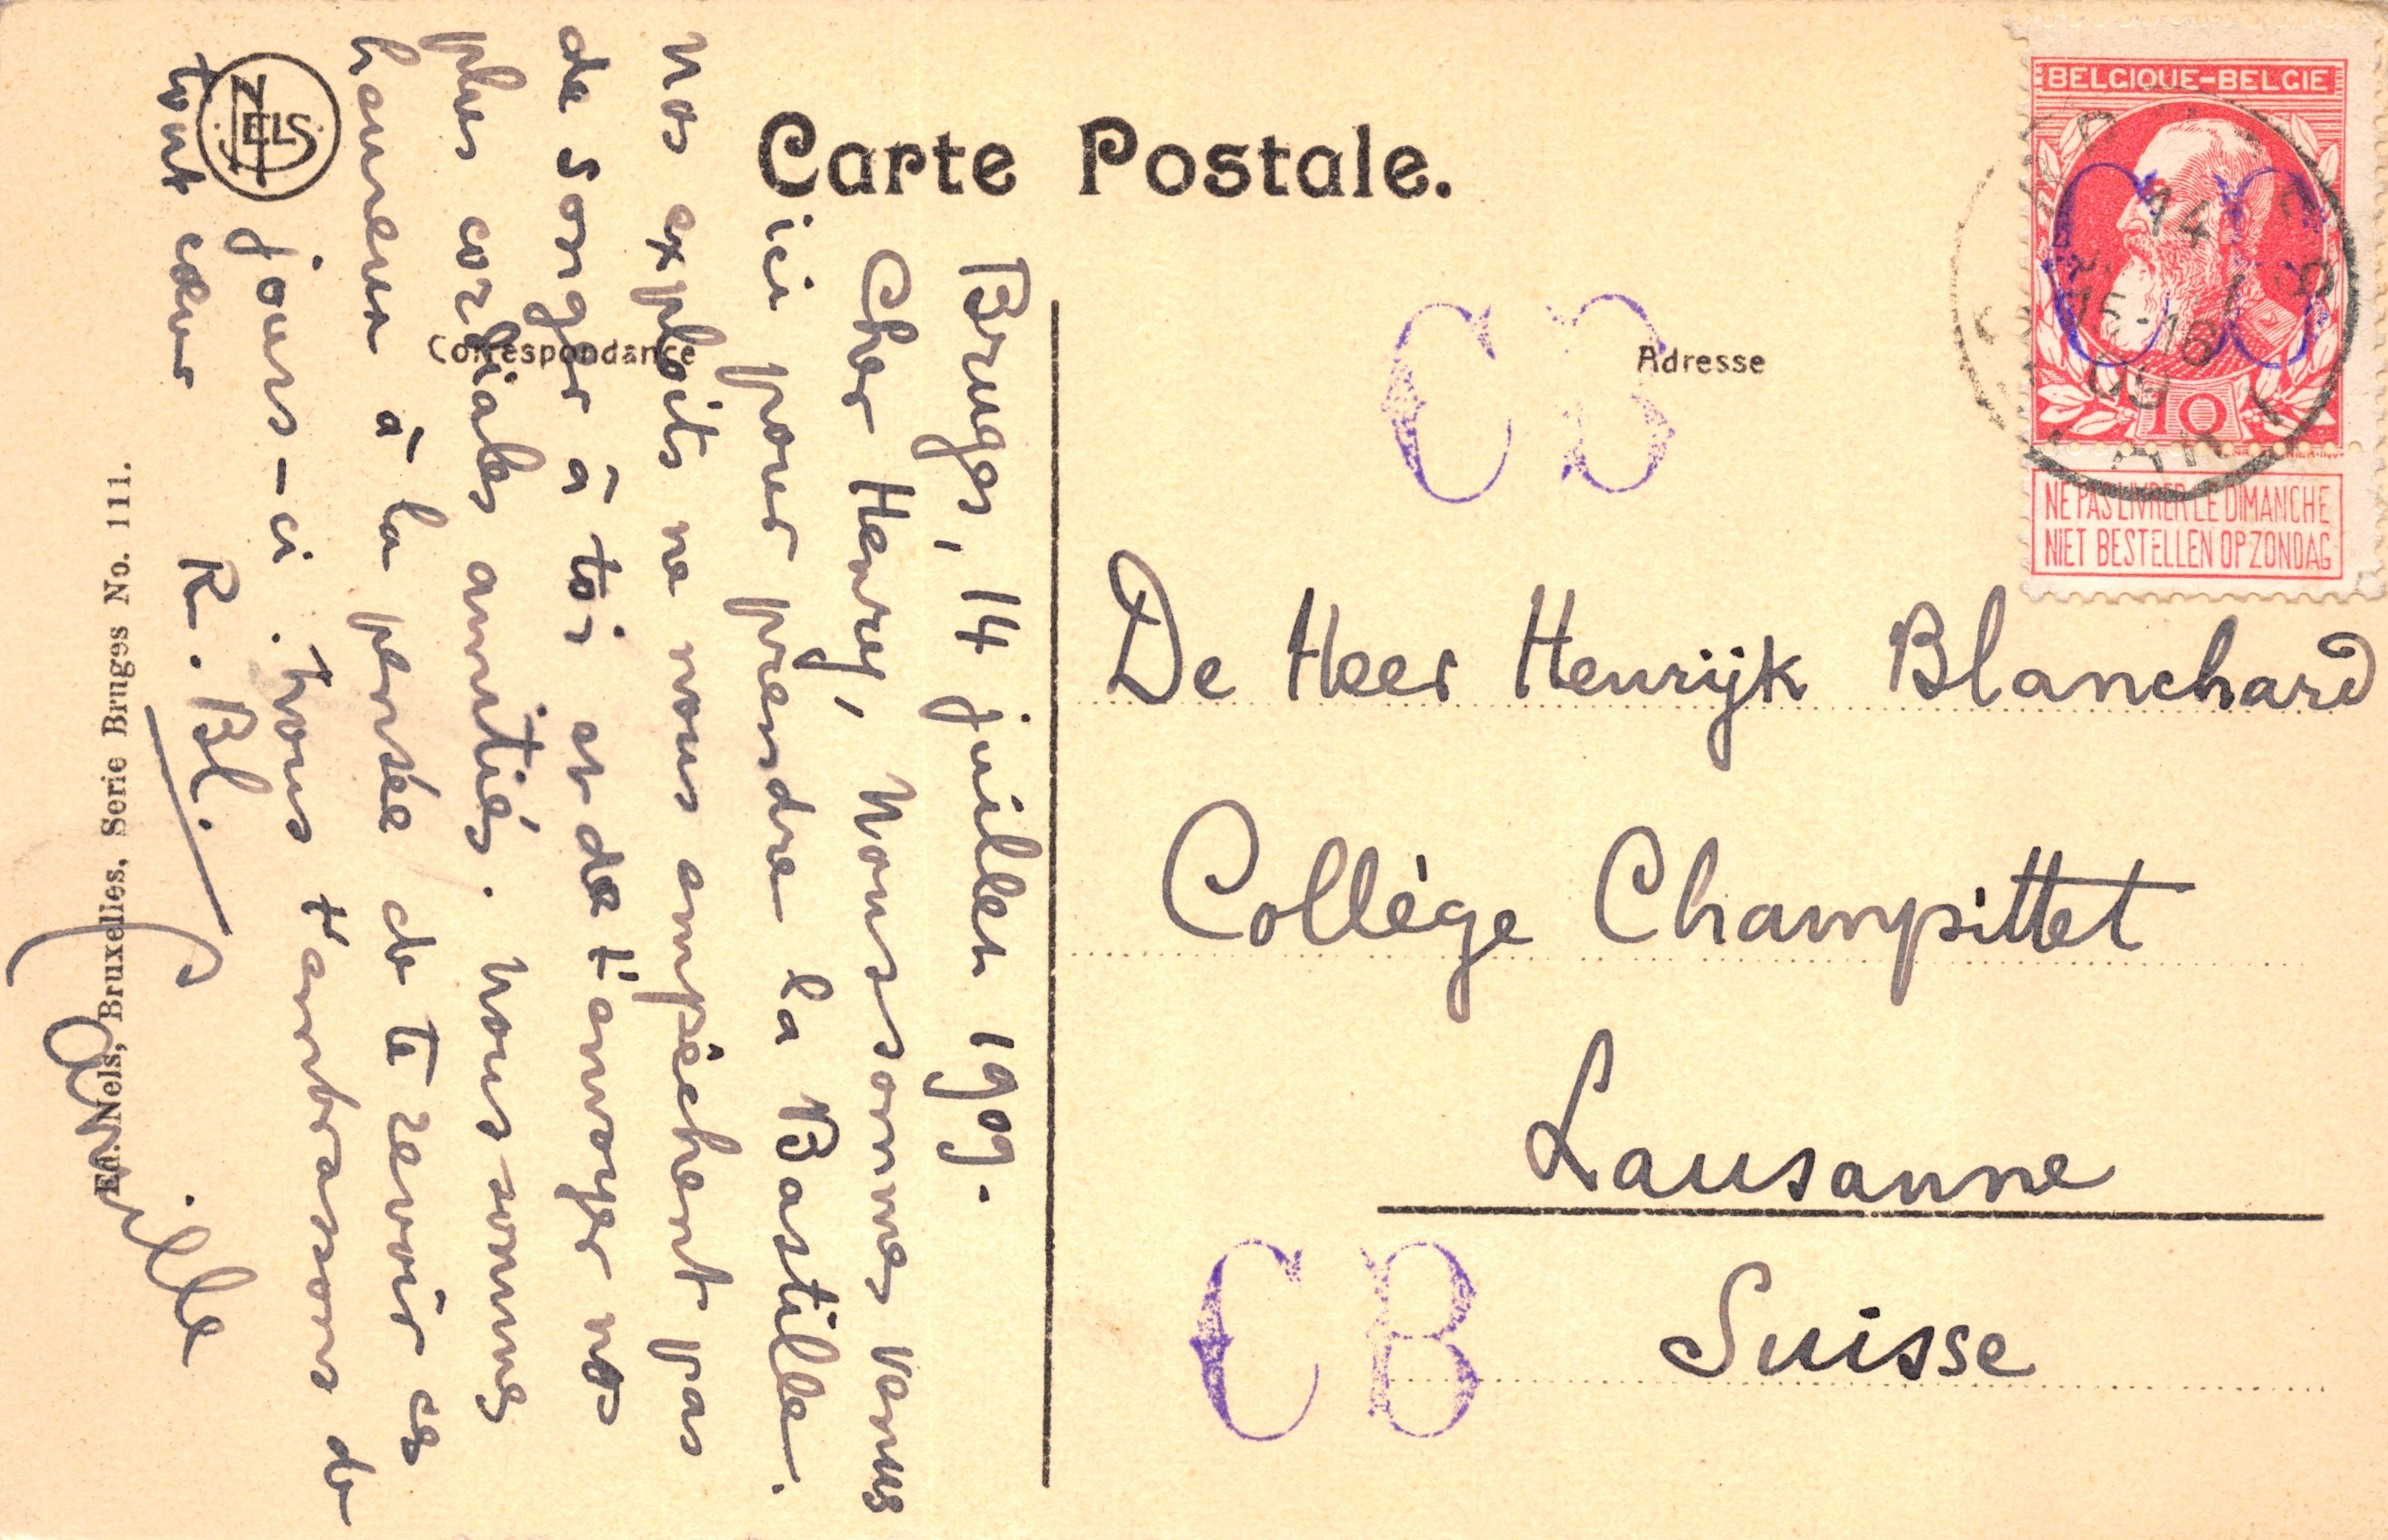 Carte Postale.
Correspondance
Adresse
BELGIQUE-BELGIE
14
15-16
09
10
NE PAS LIVRER LE DIMANCHE
NIET BESTELLEN OP ZONDAG
CB
CB
CB
De Heer Henrijk Blanchard
Collège Champittet
Lausanne
Suisse
Bruges, 14 juillet 1909.
Cher Henry, Nous sommes venus
ici pour prendre la Bastille.
Nos exploits ne nous empêchent pas
de songer à toi et de t'envoyer nos
plus cordiales amitiés. Nous sommes
heureux à la pensée de te revoir ces
jours-ci. Nous t'embrassons de
tout cœur
R. Bl.
NELS
Ed. Nels, Bruxelles. Serie Bruges No. 111.